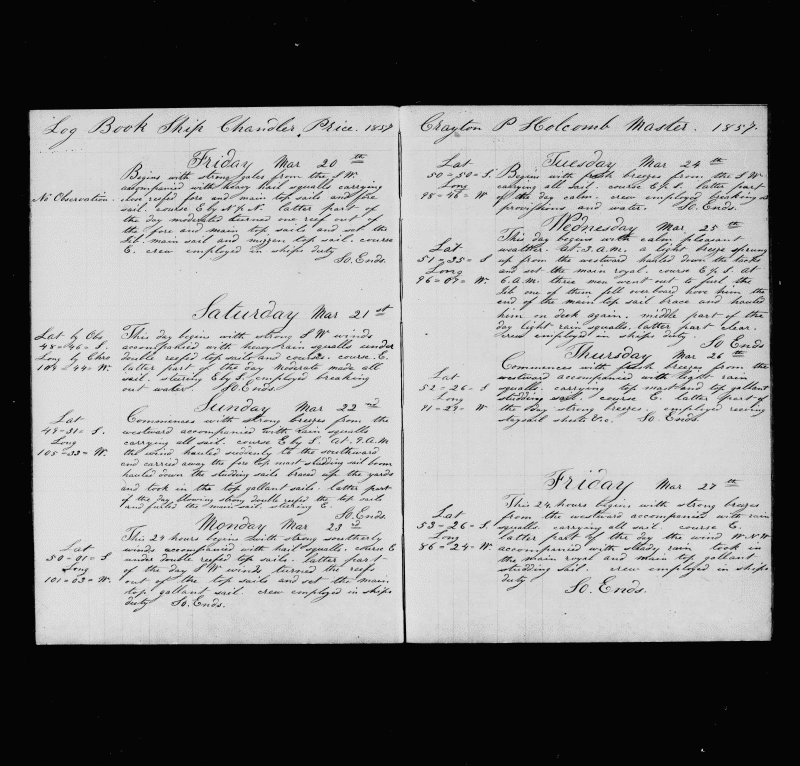 Log Book Ship Chandler Price. 1857
Friday Mar 20th
Begins with strong gales from the S W.
No Observation.
accompanied with heavy hail squalls carrying
close reefed fore and main top sails and fore
sail. course E by N ½ N. latter part of
the day moderated turned one reef out of
the fore and main top sails and set the
Jib. main sail and mizzen top sail. course
E. crew employed in ships duty
So. Ends.
Saturday Mar 21st
Lat by Obs
48=46= S.
Long by Chro
104=44= W.
This day begins with strong S W winds
accompanied with heavy rain squalls under
double reefed top sails and courses. course. E.
latter part of the day moderate made all
sail. steering E by S. employed breaking
out water. So. Ends.
Sunday Mar 22nd
Lat
49=31= S.
Long
105=33= W.
Commences with strong breezes from the
westward accompanied with rain squalls
carrying all sail. course E by S. At. 9. A.M
the wind hauled suddenly to the southward
and carried away the fore top mast studding sail boom
hauled down the studding sails braced up the yards
and took in the top gallant sails. latter part
of the day blowing strong double reefed the top sails
and furled the main sail. steering E.
So. Ends.
Monday Mar 23rd
Lat
50=01= S
Long
101=03= W.
This 24 hours begins with strong southerly
winds accompanied with hail squalls. course E
under double reefed top sails. latter part
of the day S W winds turned the reefs
out of the top sails and set the main
top gallant sail. crew employed in ships
duty So. Ends.
Crayton P Holcomb Master. 1857.
Tuesday Mar 24th
Lat
50=50= S.
Long
98=46= W
Begins with fresh breezes from the S W
carrying all sail. course E ½ S. latter part
of the day calm. crew employed breaking out
provisions and water. So. Ends.
Wednesday Mar. 25th
Lat
51=35= S
Long
96=07= W.
This day begins with calm pleasant
weather. At. 3. A.M. a light breeze sprung
up from the westward hauled down the tacks
and set the main royal. course E ½ S. At
6. A.M. three men went out to furl the
Jib one of them fell overboard hove him the
end of the main top sail brace and hauled
him on deck again. middle part of the
day light rain squalls. latter part clear.
crew employed in ships duty.
So Ends
Thursday Mar 26th
Lat
52=26= S
Long
91=29= W
Commences with fresh breezes from the
westward accompanied with light rain
squalls. carrying top mast and top gallant
studding sail. course E. latter part of
the day strong breezes. employed reeving
staysail sheets &c. So. Ends.
Friday Mar 27th
Lat
53=26= S.
Long
86=24= W.
This 24 hours begins with strong breezes
from the westward. accompanied with rain
squalls. carrying all sail. course E.
latter part of the day the wind W.N.W
accompanied with steady rain took in
the main royal and main top gallant
studding sail. crew employed in ships
duty
So. Ends.